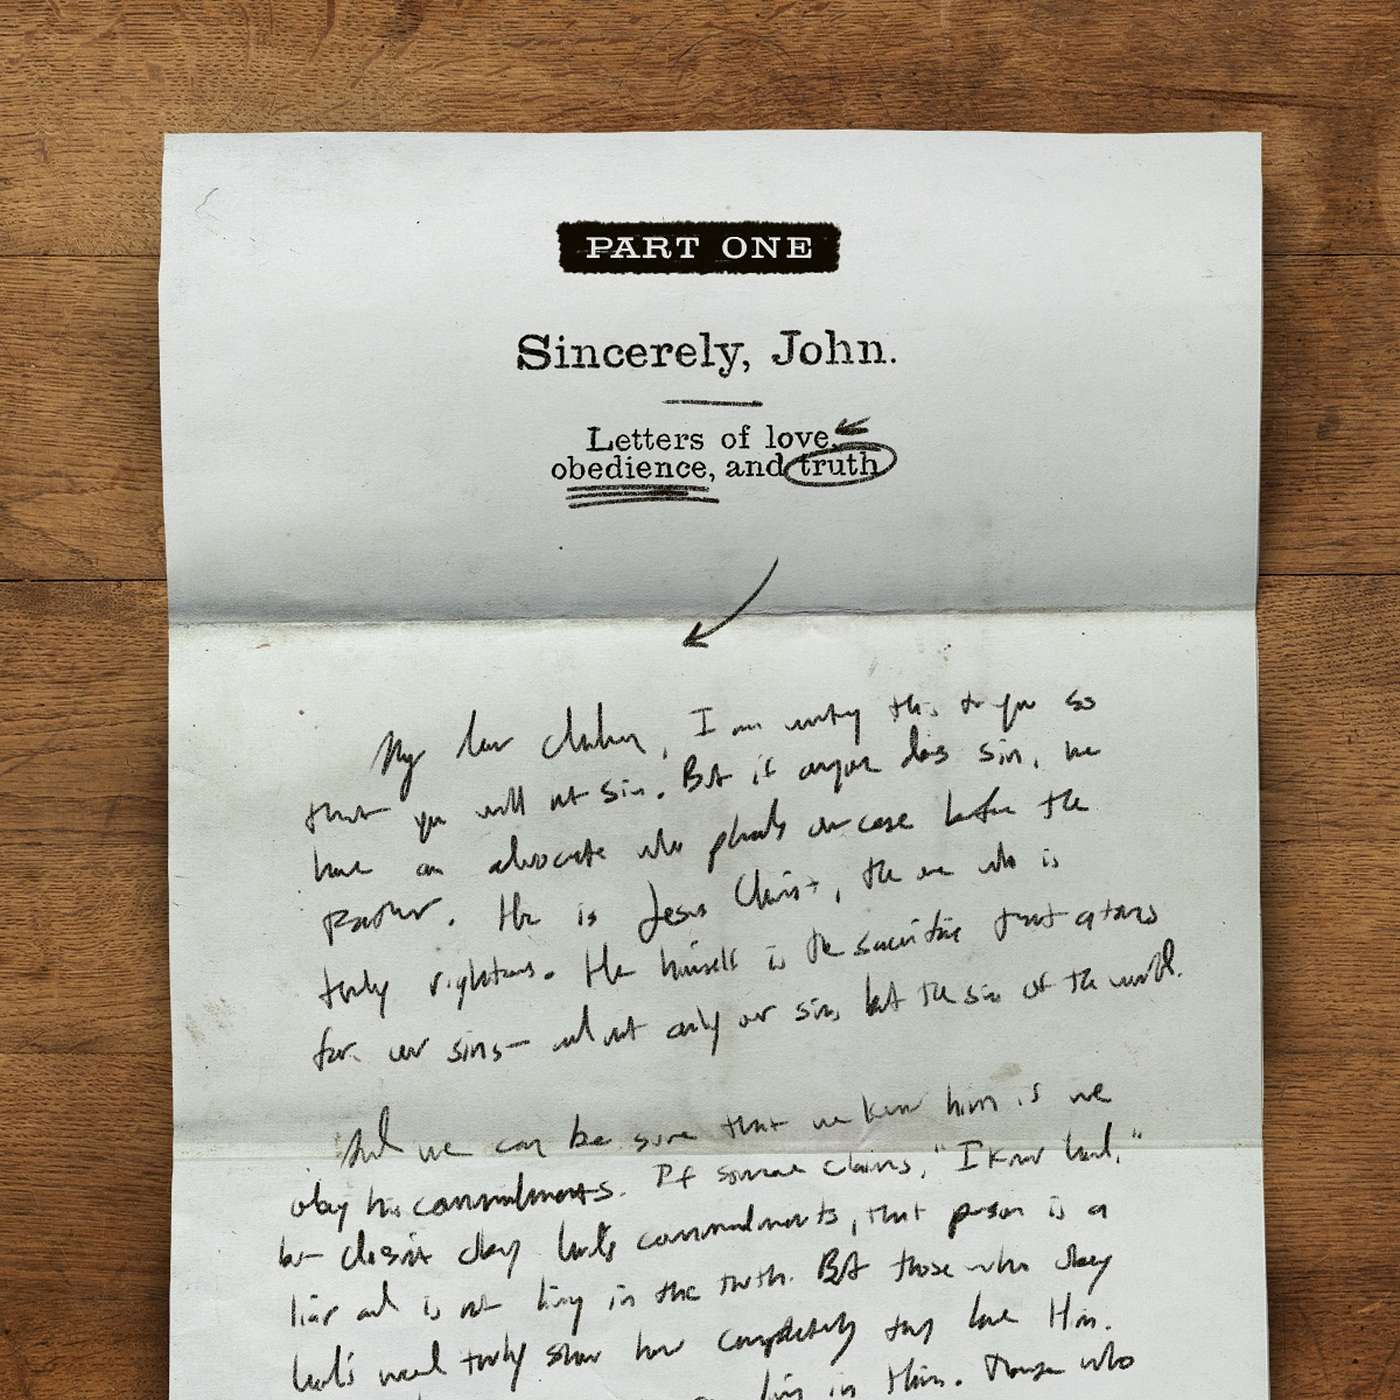 PART ONE
Sincerely, John.
Letters of love,
obedience, and truth
My dear children, I am writing this to you so
that you will not sin. But if anyone does sin, we
have an advocate who pleads our case before the
Father. He is Jesus Christ, the one who is
truly righteous. He himself is the sacrifice that atones
for our sins— and not only our sins but the sins of the world.
And we can be sure that we know him is we
obey his commandments. If someone claims, "I know God,"
but doesn't obey God's commandments, that person is a
liar and is not living in the truth. But those who obey
God's word truly show how completely they love Him.
living in Him. Those who